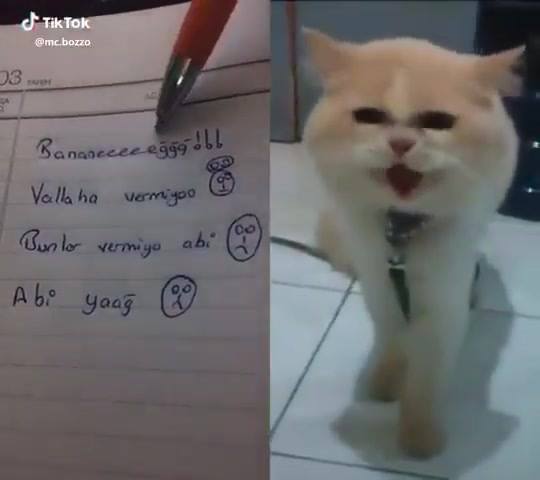 TikTok
@mc.bozzo
03
Bananeeeeeeğğğ!bb
Vallaha vermiyoo
Bunlar vermiyo abi
Abi yaağ